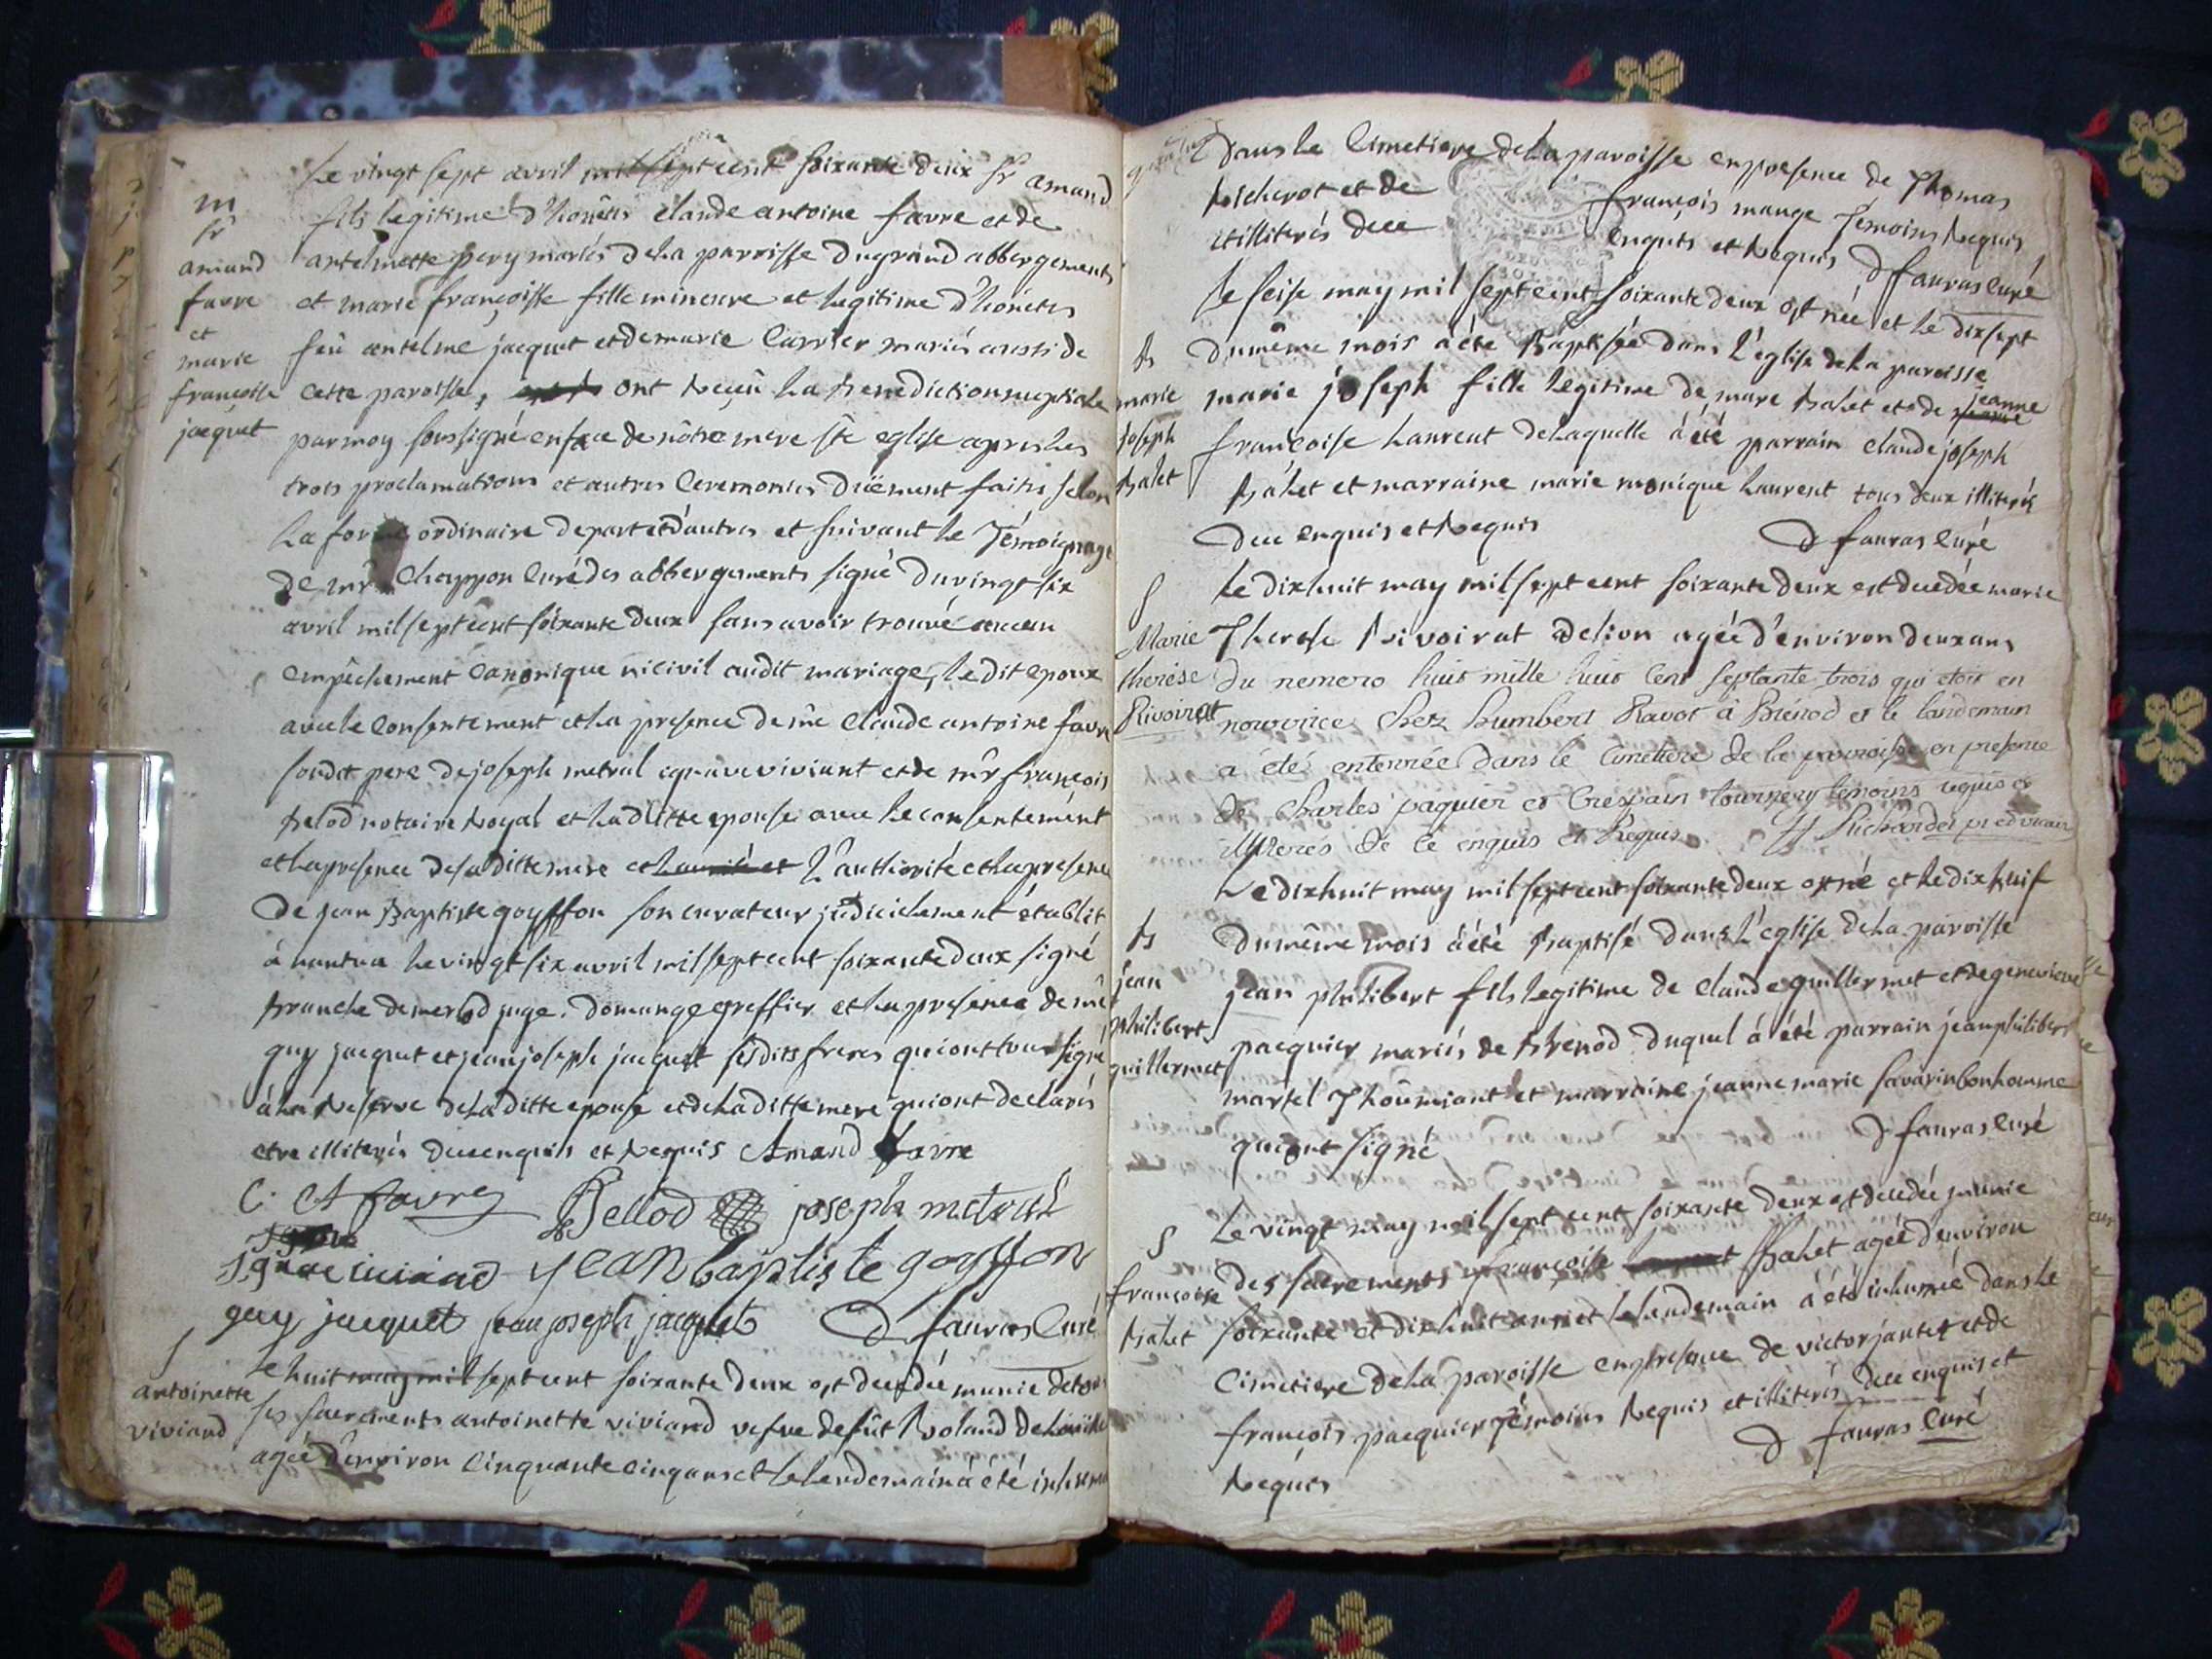 le vingt sept avril mil sept cent soixante deux sr amand
m
sr
amand
favre
et
marie
françoise
jacquet
fils legitime d'honêtes claude antoine favre et de
antelmette pery mariés de la paroisse du grand abbergements
et marie françoisse fille mineure et legitime d'honêtes
feû antelme jacquet et de marie carrier mariés aussi de
cette paroisse, ont reçeû la benediction nuptiale
par moy soussigné en face de nôtre mere ste eglise apres les
trois proclamations et autres ceremonies düement faites selon
la forme ordinaire de part et d'autres et suivant le témoignage
de mr chappon curé des abbergements signé du vingt six
avril mil sept cent soixante deux sans avoir trouvé aucun
empêchement canonique ni civil audit mariage, le dit epoux
avec le consentement et la presence de me claude antoine favre
sondit pere de joseph metral ignave viviant et de mr françois
belod notaire royal et la ditte epouse avec le consentement
et la presence de sa ditte mere et l'authorité et la presence
de jean baptiste goyffon son curateur judiciclement établit
à nantua le vingt six avril mil sept cent soixante deux signé
juge. domange greffier et la presence de me
guy jacquet et jean joseph jacquet ses dits freres qui ont tous signé
à la reserve de la ditte epouse et de la ditte mere qui ont declarés
etre illiterés de ce enquis et requis Amand favre
C. A favre Bellod joseph metral
jean baptiste goyffon
guy jacquet jean joseph jacquet D fauras curé
S
antoinette
viviand
le huit may mil sept cent soixante deux est decedée munie de tous
ses sacrements antoinette viviand vefve de fût roland
agée d'environ cinquante cinq ans et le lendemain à été inhumé
dans le cimetiere de la paroisse en presence de thomas
richerot et de françois mange temoins requis
et illiterés de ce enquis et requis D fauras curé
B
marie
joseph
balet
le seise may mil sept cent soixante deux est née et le dix sept
du même mois à été baptisée dans l'eglise de la paroisse
marie joseph fille legitime de marc balet et de jeanne
françoise laurent de laquelle à été parrain claude joseph
balet et marraine marie monique laurent tous deux illiterés
de ce enquis et requis D fauras curé
S
Marie
therése
Rivoirat
le dix huit may mil sept cent soixante deux est decedée marie
Therese rivoirat de lion agée d'environ deux ans
du nemero huit mille huit cent septante trois qui etoit en
nourrice chez humbert Ravot à Brénod et le landemain
a été enterrée dans le cimetiere de la paroisse en presence
de charles paquier et Crespain tournery temoins requis et
illiteres de ce enquis et requis
B
jean
philibert
guillermet
le dix huit may mil sept cent soixante deux est né et le dix neuf
du même mois à été baptisé dans l'eglise de la paroisse
jean philibert fils legitime de claude guillermet et de genevieve
pacquier mariés de brenod duquel à été parrain jean philibert
martel thoumiant et marraine jeanne marie savarin bonhomme
qui ont signé D fauras curé
S
françoise
balet
le vingt may mil sept cent soixante deux est decedée munie
des sacrements françoise balet agée d'environ
soixante et dix huit ans et le lendemain à été inhumée dans le
cimetiere de la paroisse en presence de victor jantet et de
françois pacquier témoins requis et illiterés de ce enquis et
requis D fauras curé